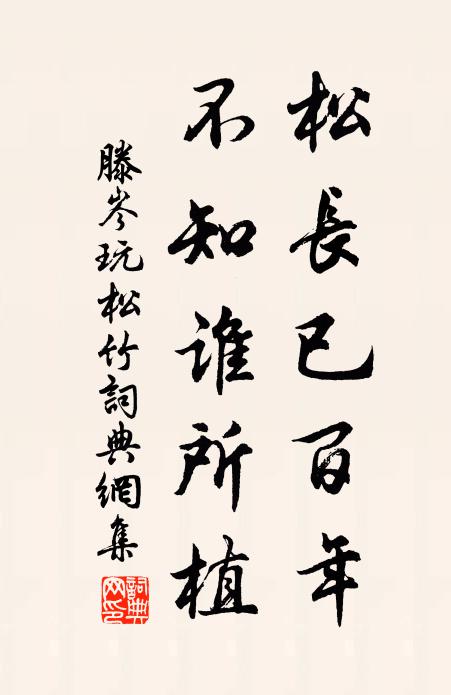 松長已百年
不知誰所植
滕岑玩松竹詞典網集
詞典
網印